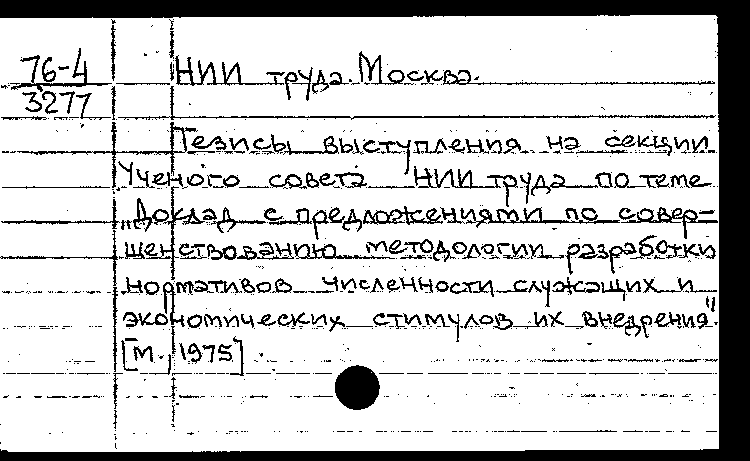 76-4
3277
НИИ труда. Москва.
Тезисы выступления на секции
Ученого совета НИИ труда по теме
„Доклад с предложениями по совер-
шенствованию методологии разработки
нормативов численности служащих и
экономических стимулов их внедрения".
[М., 1975]